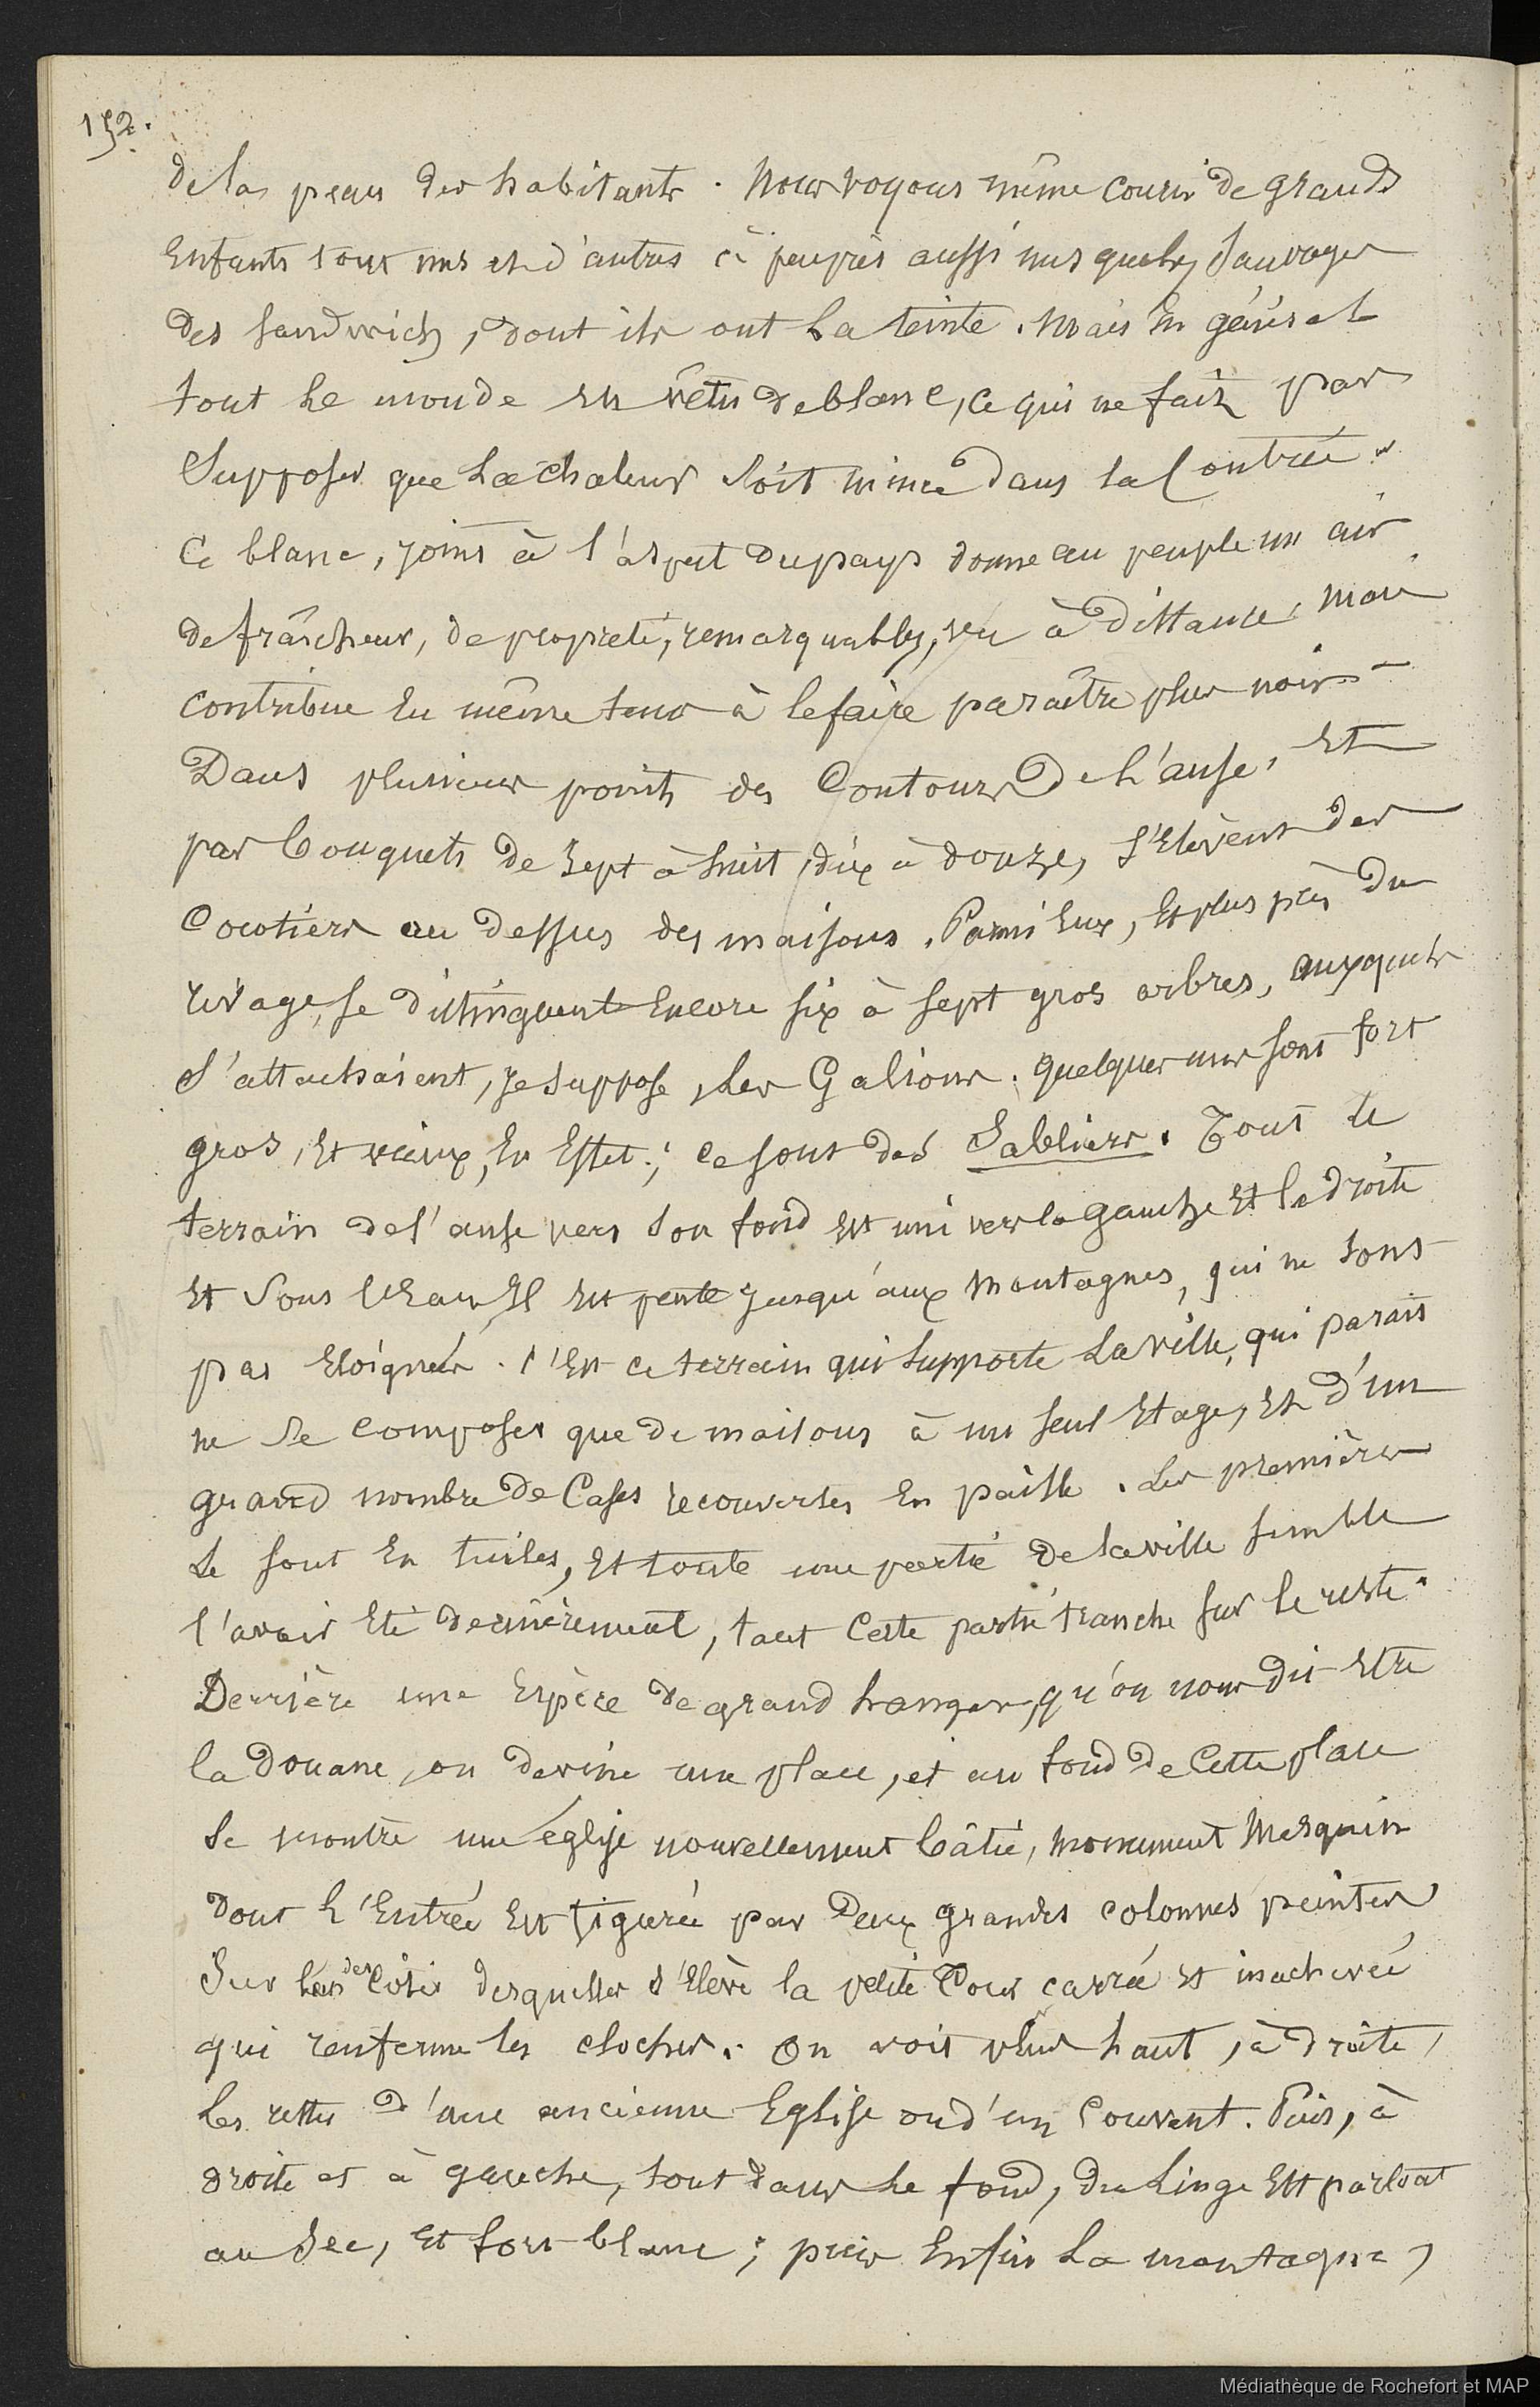 152.
de la peau des habitants. Nous voyons même courir de grands
Enfants tous nus et d'autres à peuprès aussi nus que les Sauvages
des Sandwich, dont ils ont la teinte. Mais En général
tout le monde Est vêtu de blanc, ce qui ne fait pas
Supposer que la chaleur soit mince dans la Contrée.
Ce blanc, joint à l'aspect du pays donne au peuple un air
de fraîcheur, de propreté, remarquables, vu à distance, mais
contribue En même tems à le faire paraître plus noir.
Dans plusieurs points des Contours de l'anse, Et
par bouquets de sept à huit, dix à douze, s'Elèvent des
Cocotiers au dessus des maisons. Parmi Eux, Et plus près du
rivage, se distinguent Encore six à sept gros arbres, auxquels
S'attachaient, je suppose, les Galions. quelques uns sont fort
gros, Et vieux, En Effet; ce sont des Sabliers. Tout le
terrain de l'anse vers son fond Est uni vers la gauche Et la droite
Et sous l'Eau, Il Est pente jusqu'aux montagnes, qui ne sont
pas Eloignées. C'Est ce terrain qui supporte la ville, qui parait
ne se composer que de maisons à un seul Etage, Et d'un
grand nombre de Cases recouvertes En paille. Les premières
le sont En tuiles, Et toute une partie de la ville semble
l'avoir Eté dernièrement, tant Cette partie tranche sur le reste.
Derrière une Espèce de grand hangar, qu'on nous dit Etre
la Douane, on devine une place, et au fond de Cette place
Se montre une église nouvellement bâtie, monument Mesquin
dont l'Entrée Est figurée par Deux grandes colonnes peintes
Sur des Côtés desquelles s'Elève la petite Tour carrée Et inachevée
qui renferme les cloches. On voit plus haut, à droite,
les restes d'une ancienne Eglise ou d'un Couvent. Puis, à
droite et à gauche, tout dans le fond, du Linge Est partout
au Sec, Et fort blanc; puis Enfin la montagne,
Médiathèque de Rochefort et MAP